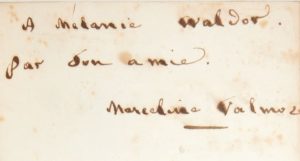 A Mélanie Waldor.
Par son amie.
Marceline Valmore